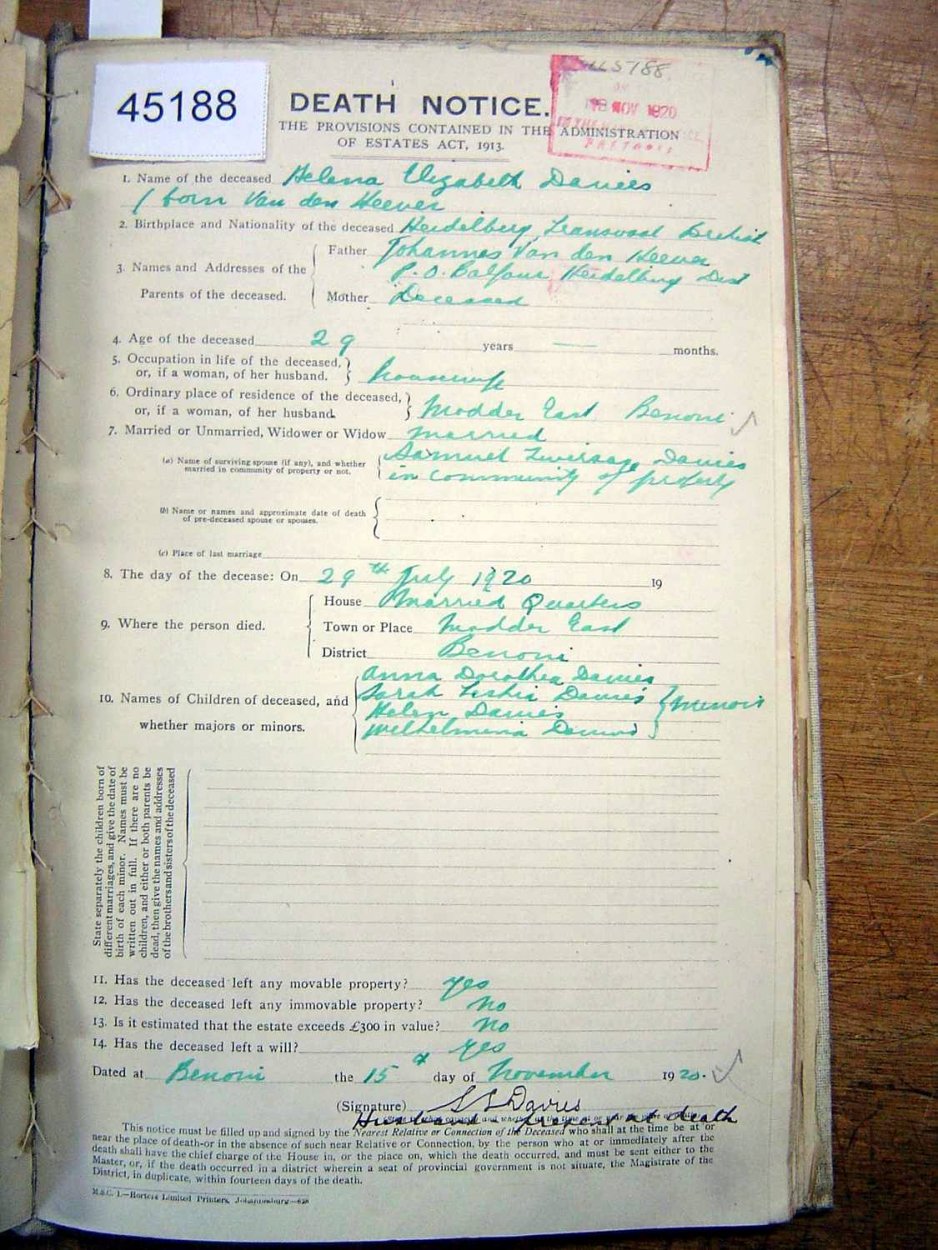 45188
45188
18 NOV 1920
PRETORIA
DEATH NOTICE.
THE PROVISIONS CONTAINED IN THE ADMINISTRATION
OF ESTATES ACT, 1913.
1. Name of the deceased Helena Elizabeth Davies
(born Van den Heever
2. Birthplace and Nationality of the deceased Heidelberg Transvaal British
3. Names and Addresses of the Parents of the deceased.
Father Johannes Van den Heever
P.O. Balfour Heidelberg Dist
Mother Deceased
4. Age of the deceased 29 years — months.
5. Occupation in life of the deceased,
or, if a woman, of her husband. housewife
6. Ordinary place of residence of the deceased,
or, if a woman, of her husband. Modder East Benoni
7. Married or Unmarried, Widower or Widow married
(a) Name of surviving spouse (if any), and whether
married in community of property or not.
Samuel Davies
in community of property
(b) Name or names and approximate date of death
of pre-deceased spouse or spouses.
(c) Place of last marriage
8. The day of the decease: On 29th July 1920 19
9. Where the person died.
House Married Quarters
Town or Place Modder East
District Benoni
10. Names of Children of deceased, and
whether majors or minors.
Anna Dorothea Davies
Sarah Davies
Helen Davies
Wilhelmena Davies
minors
State separately the children born of
different marriages, and give the date of
birth of each minor. Names must be
written out in full. If there are no
children, and either or both parents be
dead, then give the names and addresses
of the brothers and sisters of the deceased
11. Has the deceased left any movable property? yes
12. Has the deceased left any immovable property? no
13. Is it estimated that the estate exceeds £300 in value? no
14. Has the deceased left a will? yes
Dated at Benoni the 15th day of November 1920.
(Signature) S L Davies
Husband present at death
This notice must be filled up and signed by the Nearest Relative or Connection of the Deceased who shall at the time be at or
near the place of death-or in the absence of such near Relative or Connection, by the person who at or immediately after the
death shall have the chief charge of the House in, or the place on, which the death occurred, and must be sent either to the
Master, or, if the death occurred in a district wherein a seat of provincial government is not situate, the Magistrate of the
District, in duplicate, within fourteen days of the death.
M.S.C. 1.—Hortors Limited Printers, Johannesburg—